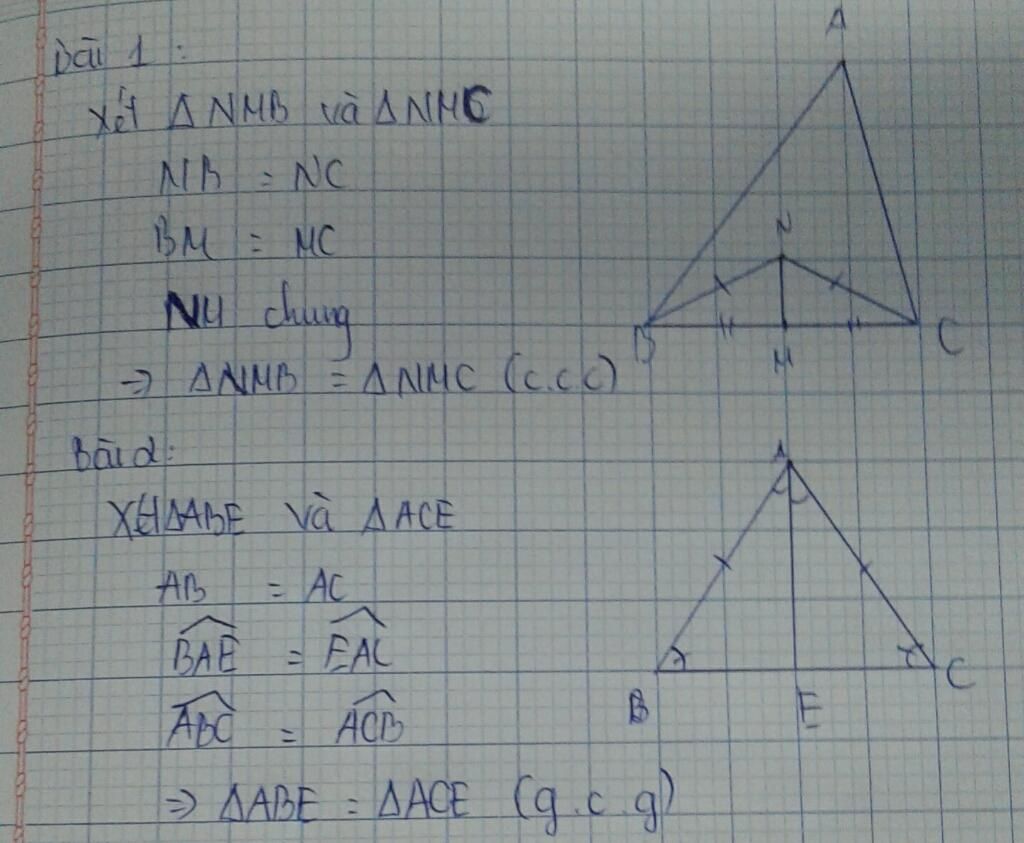 Bài 1:
Xét ΔNMB và ΔNMC
NB = NC
BM = MC
NM chung
=> ΔNMB = ΔNMC (c.c.c)
A
N
B
M
C
Bài 2:
Xét ΔABE và ΔACE
AB = AC
\widehat{BAE} = \widehat{EAC}
\widehat{ABC} = \widehat{ACB}
=> ΔABE = ΔACE (g.c.g)
A
B
E
C